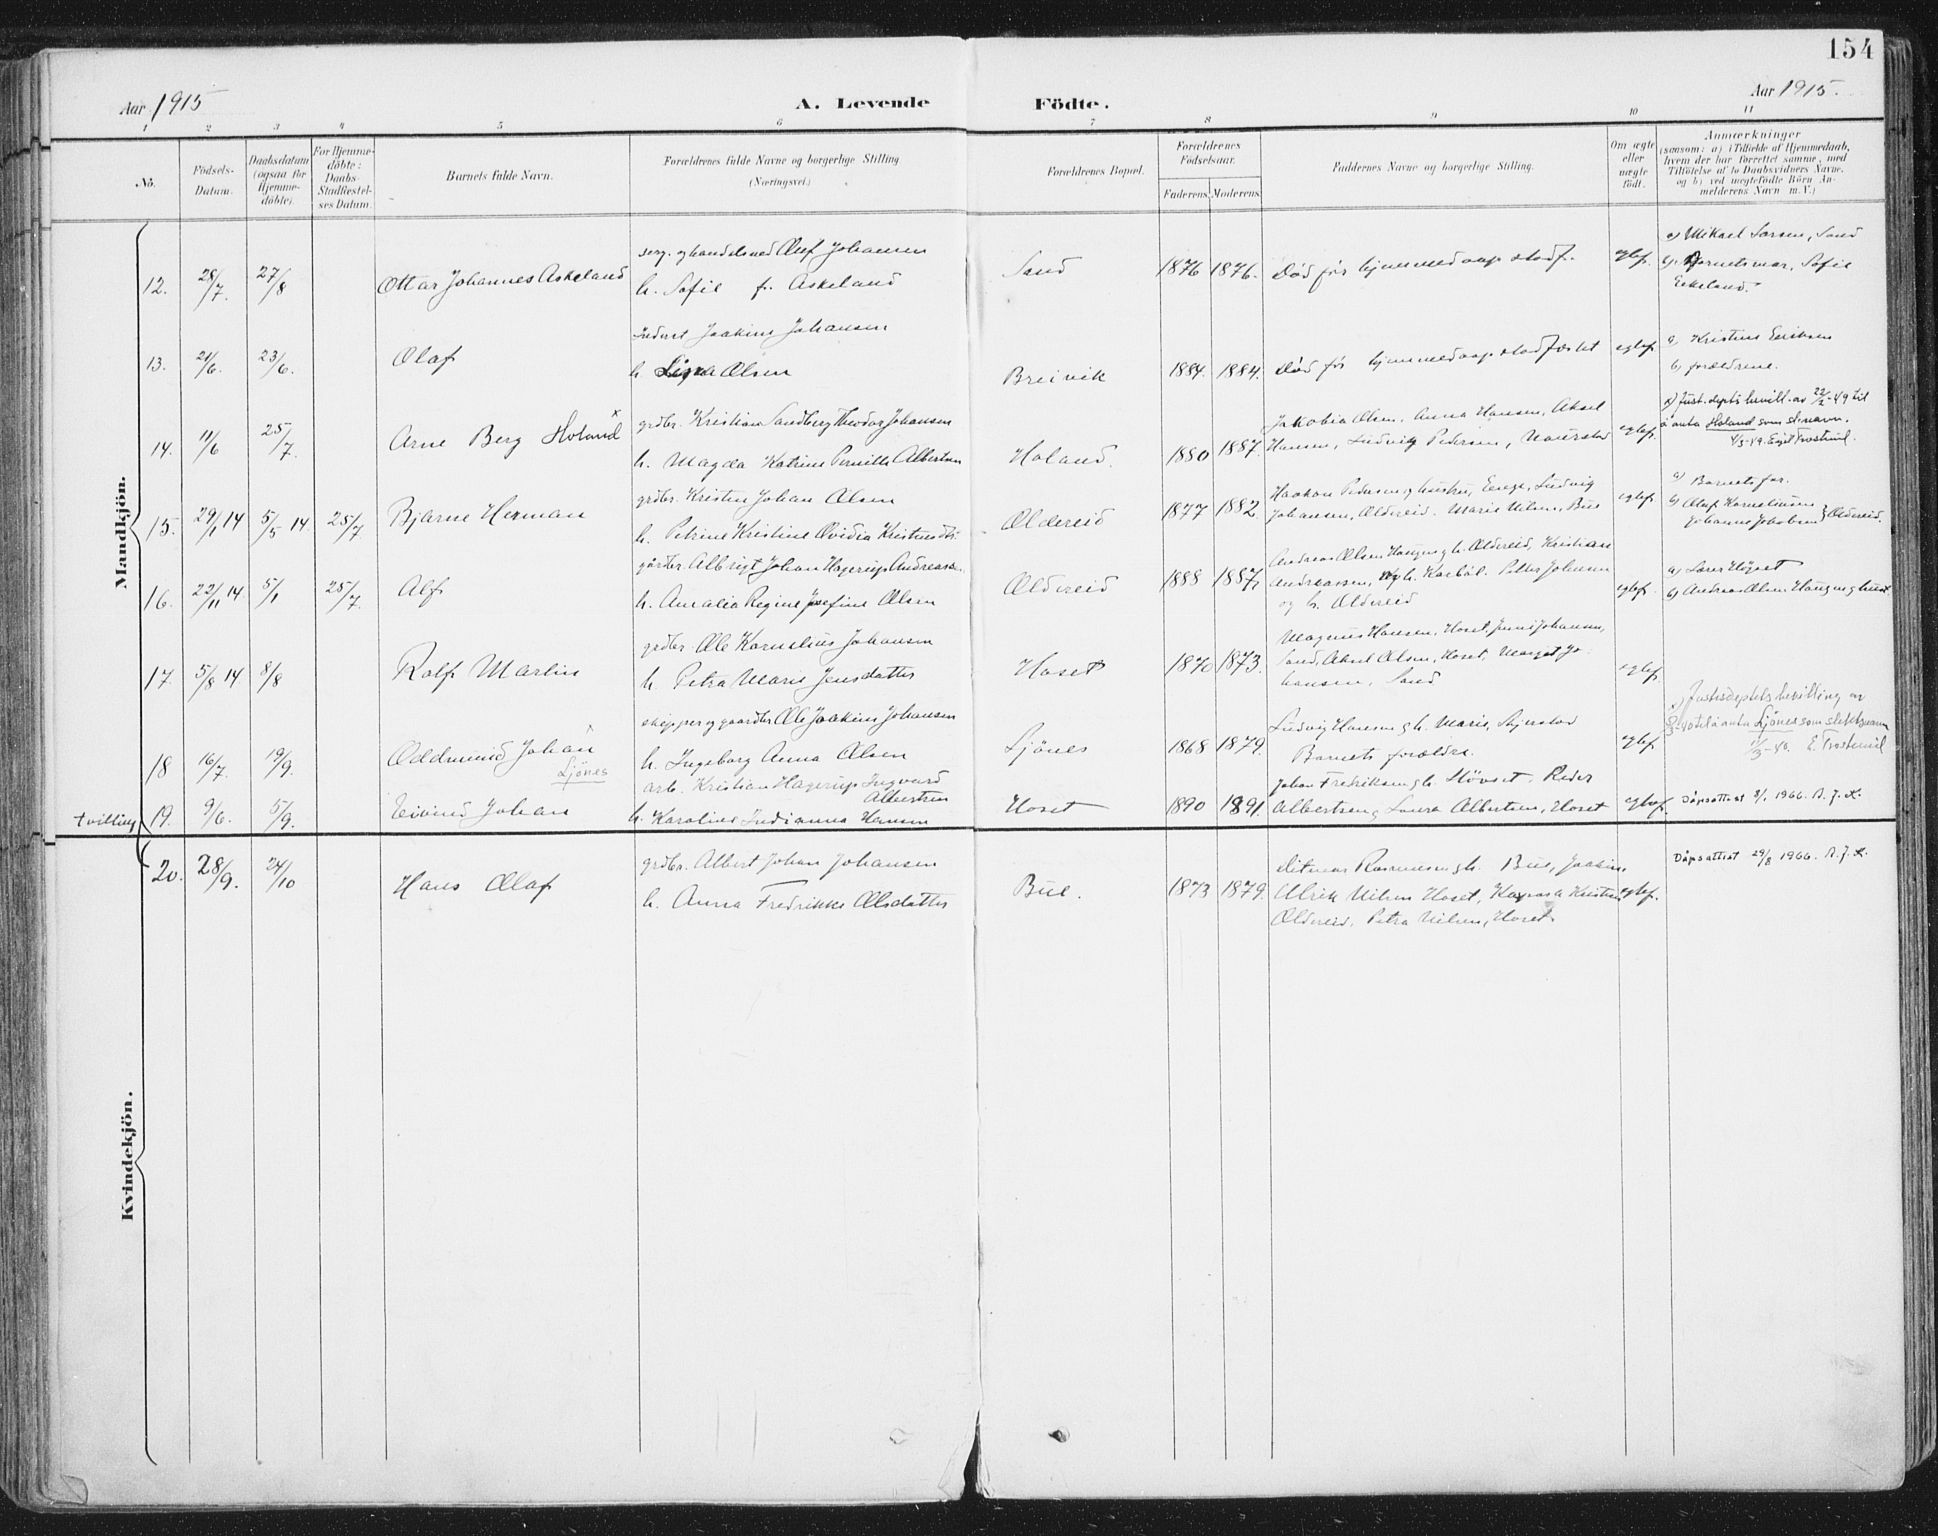 154
Aar 1915
A. Levende Födte.
Aar 1915.
1 2 3 4 5 6 7 8 9 10 11
No.
Födsels-Datum.
Daabsdatum (ogsaa for Hjemme-döbte).
For Hjemme-döbte: Daabs-Stadfestel-ses Datum.
Barnets fulde Navn.
Forældrenes fulde Navne og borgerlige Stilling
(Næringsvei.)
Forældrenes Bopæl.
Forældrenes Födselsaar.
Faderens. Moderens.
Faddernes Navne og borgerlige Stilling.
Om ægte eller uægte födt.
Anmærkninger
(saasom: a) i Tilfælde af Hjemmedaab,
hvem der har forrettet samme, med
Tilföielse af to Daabsvidners Navne.
og b) ved uægtefödte Börn An-
melderens Navn m. V.)
Mandkjön.
12. 28/7. 27/8 Ottar Johannes Askeland
Oluf Johansen
h. Sofie f. Askeland
Sand 1876 1876. Död før hjemmedaap stadf. egtef.
a) Mikael Larsen, Sand
b) Barnets mor, Sofie
13. 21/6. 23/6. Olaf
Inderst Joakim Johansen
h. Olsen
Breivik 1884. 1884. Död før hjemmedaap stadfæstet egtef.
a) Kristine Eriksen
b) forældrene.
14. 11/6 25/7. Arne Berg Holand x
grdbr. Kristian Sandberg Theodor Johansen
h. Magda Katrine Pernille Albertsen
Holand. 1880 1887.
Jakobia Olsen, Anna Hansen, Aksel
Hansen, Ludvig Pedersen, Naurstad
egtef.
x) Just.dept's bevill. av 22/2-49 til
å anta Holand som sl.navn.
4/3-49. Egil Trostmil.
15. 29/1 14 5/5 14. 25/7 Bjarne Herman
grdbr. Kristen Johan Olsen
h. Petrine Kristine Ovidia Kristensdtr.
Oldereid 1877 1882.
Haakon Pedersen og hustru, Enge, Ludvig
Johansen, Oldereid. Marie Nilsen, Bue
egtef.
a) Barnets far.
b) Olaf Kornelius
Johanne Jakobsen } Oldereid.
16. 22/11 14. 5/1 25/7. Alf
gårdbr. Albrigt Johan Hagerup Andreassen.
h. Amalia Regine Josefine Olsen
Oldereid 1888 1887.
Andreas Olsen Haugen og h. Oldereid, Kristian
Andreassen, og h. Karbøl. Petter Johansen
og h. Oldereid
egtef.
a) Lærer Höyset
b) Andreas Olsen Haugen og hust.
17. 5/8 14. 8/8 Rolf Martin
grdbr. Ole Kornelius Johansen
h. Petra Marie Jensdatter
Hoset 1870 1873.
Magnus Hansen, Hoset, Johansen,
Sand, Olsen, Hoset, Margot Jo-
hansen, Sand
egtef.
18 16/7. 19/9. Oddmund Johan x
Ljönes
skipper og gaardbr Ole Joakim Johansen
h. Ingeborg Anna Olsen
Ljönes 1868 1879.
Ludvig Hansen og h. Marie,
Barnets forældre.
egtef.
x) Justisdeptets bevilling av
til å anta Ljönes som slektsnavn
1/3-40. E. Trostmil
tvilling 19. 9/6. 5/9. Eivind Johan
arb. Kristian Hagerup Ingvard
Albertsen
h. Karoline Indianna Hansen
Hoset 1890 1891.
Johan Fredriksen og h. Hövset, Peder
Albertsen, Laura Albertsen, Hoset
egtef. Dåpsattest 8/1 1966. A. J. L.
Kvindekjön.
20. 28/9. 24/10 Hans Olaf
grdbr. Albert Johan Johansen
h. Anna Fredrikke Olsdatter
Bue. 1873 1879.
Ditmar Rasmussen og h. Bue, Joakim
Ulrik Nilsen Hoset, Kristine
Oldereid. Petra Nilsen, Hoset
egtef. Dåpsattest 29/8 1966. A. J. L.